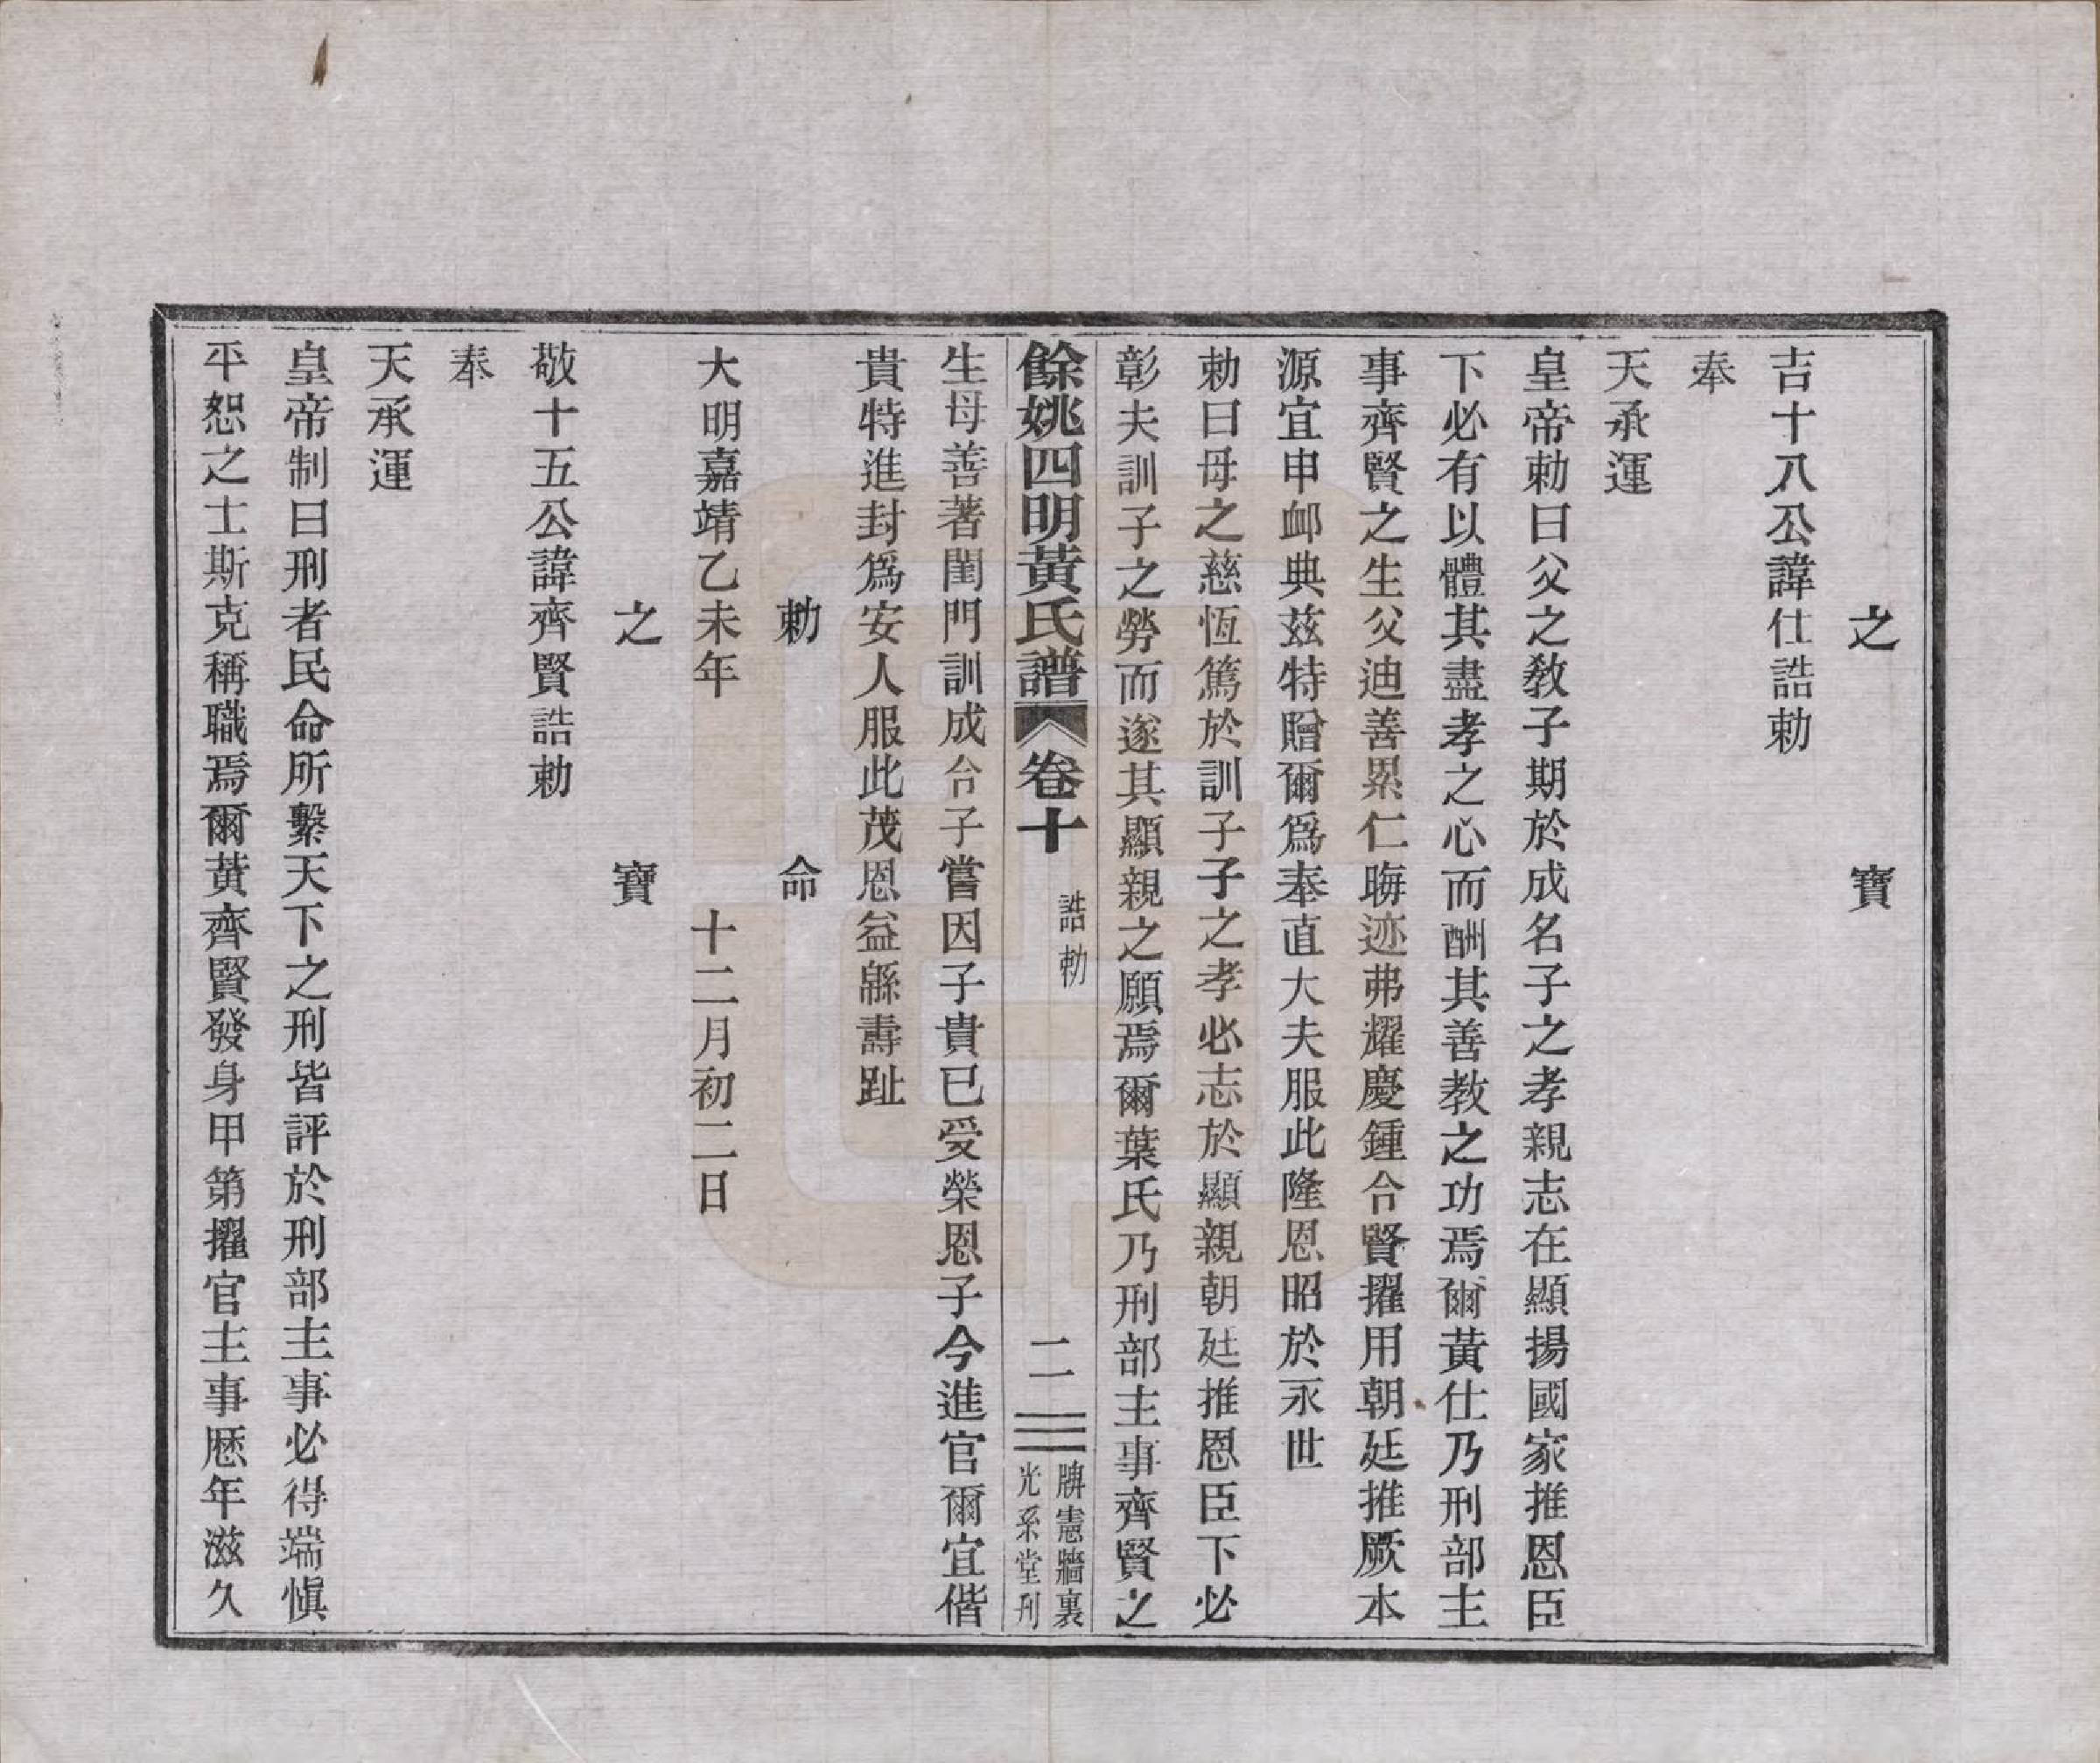 之寶
吉十八公諱仕誥勅
奉
天承運
皇帝勅曰父之敎子期於成名子之孝親志在顯揚國家推恩臣
下必有以體其盡孝之心而酬其善教之功焉爾黃仕乃刑部主
事齊賢之生父迪善累仁晦迹弗耀慶鍾令賢擢用朝廷推厥本
源宜申卹典茲特贈爾爲奉直大夫服此隆恩昭於永世
勅曰母之慈恆篤於訓子子之孝必志於顯親朝廷推恩臣下必
彰夫訓子之勞而遂其顯親之願焉爾葉氏乃刑部主事齊賢之
餘姚四明黃氏譜 卷十 誥勅 二 牌憲牆裏
光系堂刊
生母善著閨門訓成令子嘗因子貴已受榮恩子今進官爾宜偕
貴特進封爲安人服此茂恩益緜壽趾
勅命
大明嘉靖乙未年十二月初二日
之寶
敬十五公諱齊賢誥勅
奉
天承運
皇帝制曰刑者民命所繫天下之刑皆評於刑部主事必得端愼
平恕之士斯克稱職焉爾黃齊賢發身甲第擢官主事歷年滋久